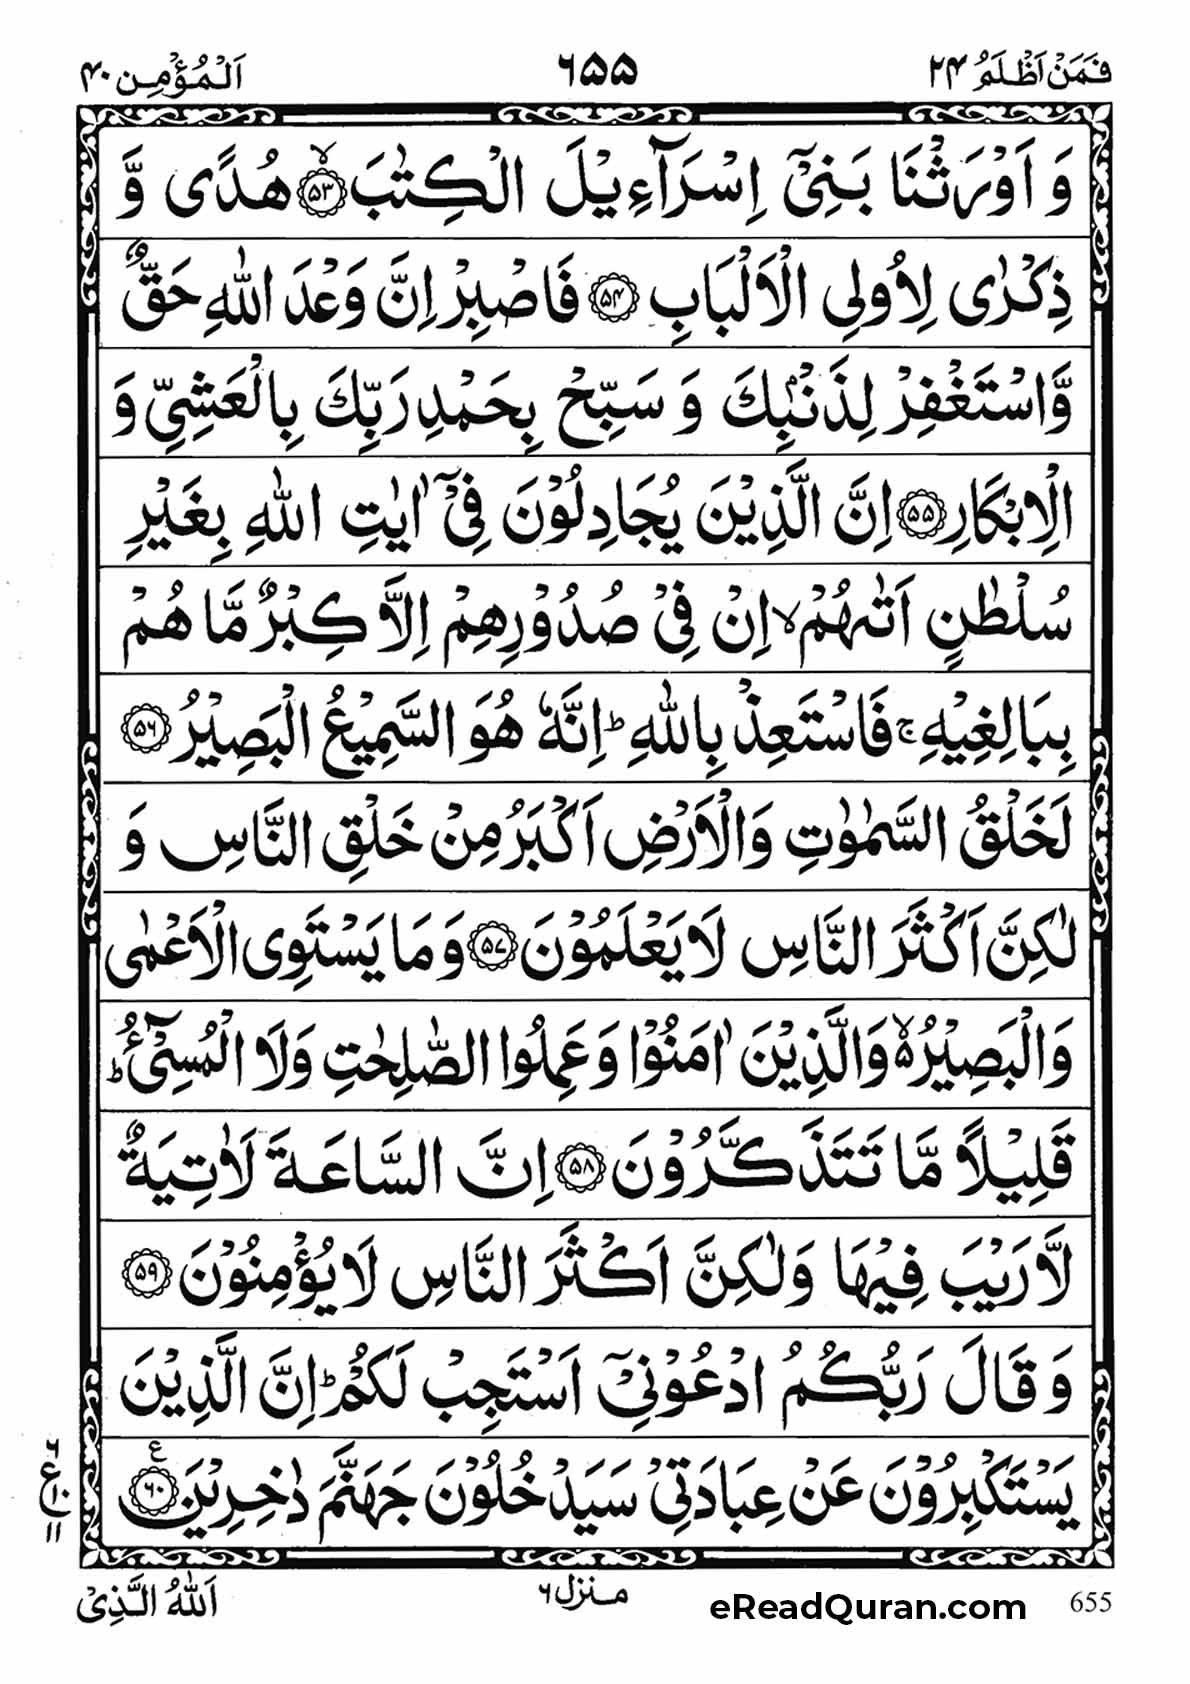 فَمَنْ اَظْلَمُ ۲۴ ۶۵۵ اَلْمُؤْمِن ۴۰
وَ اَوْرَثْنَا بَنِیْۤ اِسْرَآءِیْلَ الْكِتٰبَ ۙ﴿۵۳﴾ هُدًی وَّ
ذِكْرٰی لِاُولِی الْاَلْبَابِ ﴿۵۴﴾ فَاصْبِرْ اِنَّ وَعْدَ اللّٰهِ حَقٌّ
وَّاسْتَغْفِرْ لِذَنْۢبِكَ وَ سَبِّحْ بِحَمْدِ رَبِّكَ بِالْعَشِیِّ وَ
الْاِبْكَارِ ﴿۵۵﴾ اِنَّ الَّذِیْنَ یُجَادِلُوْنَ فِیْۤ اٰیٰتِ اللّٰهِ بِغَیْرِ
سُلْطٰنٍ اَتٰىهُمْ ۙ اِنْ فِیْ صُدُوْرِهِمْ اِلَّا كِبْرٌ مَّا هُمْ
بِبَالِغِیْهِ ۚ فَاسْتَعِذْ بِاللّٰهِ ؕ اِنَّهٗ هُوَ السَّمِیْعُ الْبَصِیْرُ ﴿۵۶﴾
لَخَلْقُ السَّمٰوٰتِ وَالْاَرْضِ اَكْبَرُ مِنْ خَلْقِ النَّاسِ وَ
لٰكِنَّ اَكْثَرَ النَّاسِ لَا یَعْلَمُوْنَ ﴿۵۷﴾ وَ مَا یَسْتَوِی الْاَعْمٰی
وَالْبَصِیْرُ ۙ۬ وَالَّذِیْنَ اٰمَنُوْا وَ عَمِلُوا الصّٰلِحٰتِ وَلَا الْمُسِیْٓءُ ؕ
قَلِیْلًا مَّا تَتَذَكَّرُوْنَ ﴿۵۸﴾ اِنَّ السَّاعَةَ لَاٰتِیَةٌ
لَّا رَیْبَ فِیْهَا وَلٰكِنَّ اَكْثَرَ النَّاسِ لَا یُؤْمِنُوْنَ ﴿۵۹﴾
وَ قَالَ رَبُّكُمُ ادْعُوْنِیْۤ اَسْتَجِبْ لَكُمْ ؕ اِنَّ الَّذِیْنَ
یَسْتَكْبِرُوْنَ عَنْ عِبَادَتِیْ سَیَدْخُلُوْنَ جَهَنَّمَ دٰخِرِیْنَ ﴿۶۰﴾ ع
۶
ع ۱۰
۱۱
655 eReadQuran.com منزل ۶ اَللّٰهُ الَّذِیْ